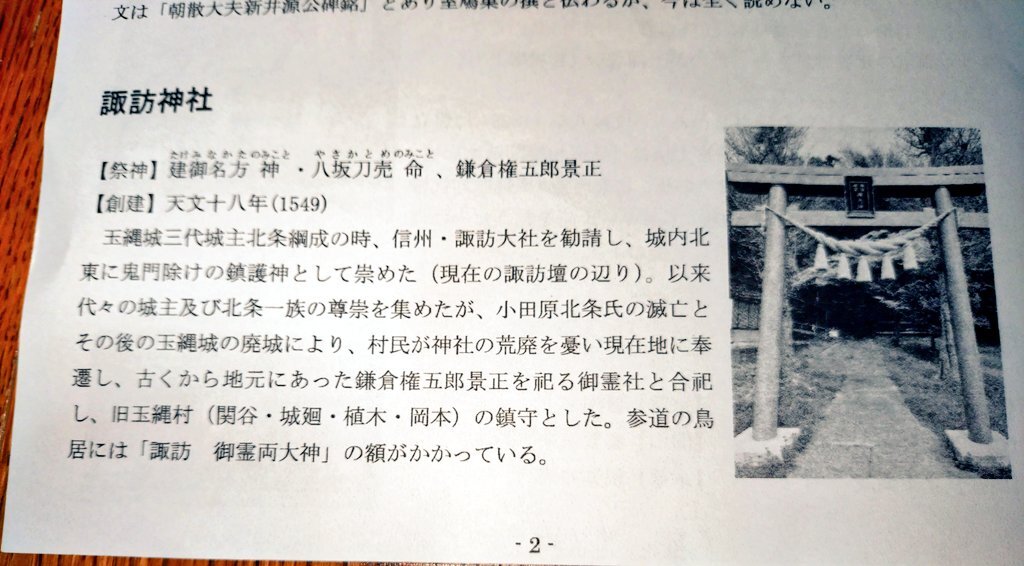 文は「朝散大夫新井源公碑銘」とあり室鳩巣の撰と伝わるが、今は全く読めない。
諏訪神社
たけみなかたのみこと やさかとめのみこと
【祭神】建御名方 神 ・八坂刀売 命 、鎌倉権五郎景正
【創建】天文十八年(1549)
玉縄城三代城主北条綱成の時、信州・諏訪大社を勧請し、城内北
東に鬼門除けの鎮護神として崇めた（現在の諏訪壇の辺り）。以来
代々の城主及び北条一族の尊崇を集めたが、小田原北条氏の滅亡と
その後の玉縄城の廃城により、村民が神社の荒廃を憂い現在地に奉
遷し、古くから地元にあった鎌倉権五郎景正を祀る御霊社と合祀
し、旧玉縄村（関谷・城廻・植木・岡本）の鎮守とした。参道の鳥
居には「諏訪　御霊両大神」の額がかかっている。
- 2 -